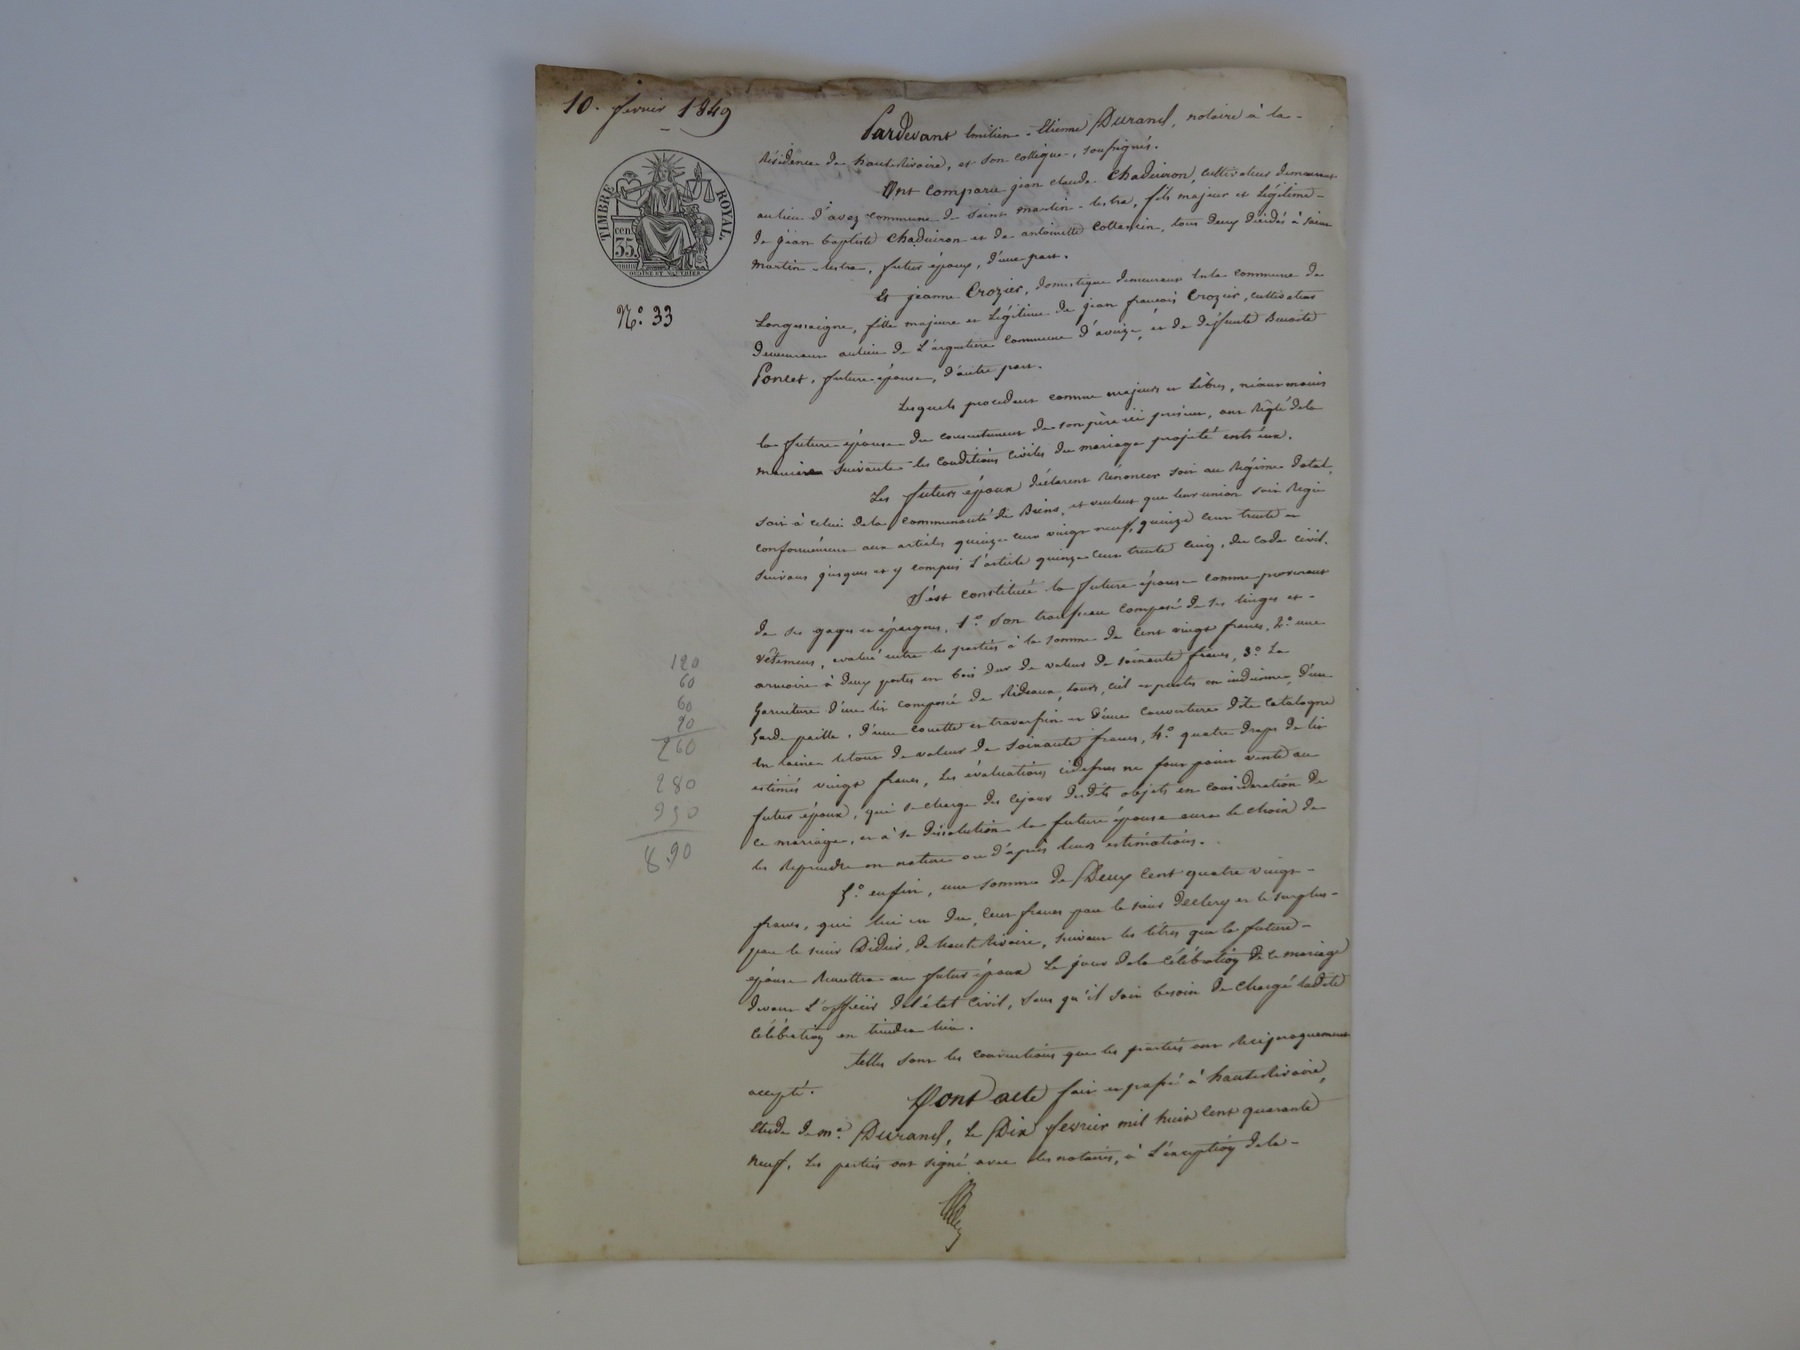 10. fevrier 1849
TIMBRE ROYAL.
35 cent
N.° 33
Pardevant Emilien-Etienne Durand, notaire à la
Résidence de hauterivoire, et son collègue, soussignés.
Ont comparu jean claude Chaduiron, cultivateur demeurant
au lieu d'avez commune de saint martin-lestra, fils majeur et légitime
de jean baptiste Chaduiron et de antoinette Collassin, tous deux décédés à saint
martin-lestra, futur époux, d'une part.
Et jeanne Crozier, domestique demeurant en la commune de
Longessaigne, fille majeure et légitime de jean françois Crozier, cultivateur
demeurant au lieu de L'argentière commune d'aveize, et de deffunte Benoite
Poncet, future épouse, d'autre part.
Lesquels procedant comme majeurs et Libres, néanmoins
la future épouse du consentement de son père ici présent, ont Réglé de la
manière suivante les conditions civiles du mariage projeté entr'eux.
Les futurs époux déclarent Rénoncer soit au Régime dotal,
soit à celui de la communauté de Biens, et veulent que leur union soit Regie
conformément aux articles quinze cent vingt neuf, quinze cent trente et
suivans jusques et y compris L'article quinze cent trente cinq, du Code civil.
S'est constituée la future épouse comme provenant
de ses gages et épargnes, 1.° Son trousseau composé de ses linges et
vêtemens, evalué entre les parties à la somme de Cent vingt francs, 2.° une
armoire à deux portes en bois dur de valeur de soixante francs, 3.° La
Garniture d'un lit composé de Rideaux, tours, ciel et pentes en indienne, d'une
Garde paille, d'une couette et traversin et d'une couverture dite Catalogne
en laine le tout de valeur de soixante francs, 4.° quatre draps de lit
estimés vingt francs, Les évaluations cidessus ne font point vente au
futur époux, qui se charge des ce jour desdits objets en considération de
ce mariage, et à sa dissolution la future épouse aura le choix de
les Reprendre en nature ou d'après leurs estimations.
5.° enfin, une somme de Deux Cent quatre vingt
francs, qui lui est due, Cent francs par le sieur Declery et le surplus
par le sieur Didier, de hauterivoire, suivant les titres que la future
épouse Remettra au futur époux Le jour de la célébration de ce mariage
devant L'officier de l'état civil, sans qu'il soit besoin de charge ladite
Célébration en tiendra lieu.
telles sont les conventions que les parties ont Reciproquement
accepté.
Dont acte fait et passé à hauterivoire,
etude de m.e Durand, Le Dix fevrier mil huit cent quarante
neuf, Les parties ont signé avec les notaires, à L'exception de la
120
60
60
20
260
280
890